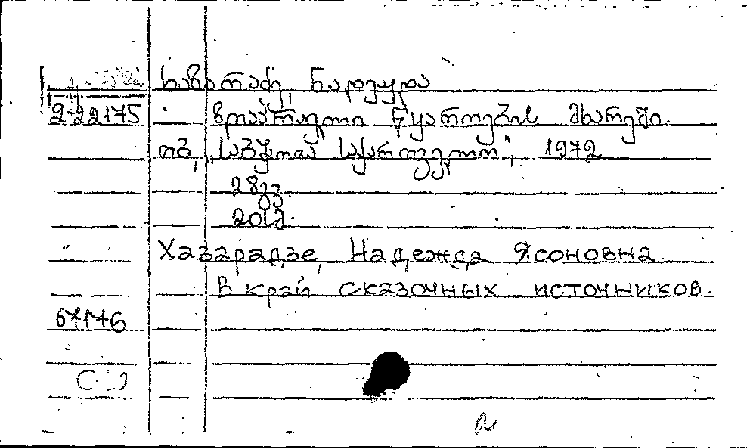 ხაზარაძე, ნადეჟდა
2-22175 ზღაპრული წყაროების მხარეში.
თბ, „საბჭოთა საქართველო", 1972
28გვ
20კ
Хазарадзе, Надежда Ясоновна
В край сказочных источников.